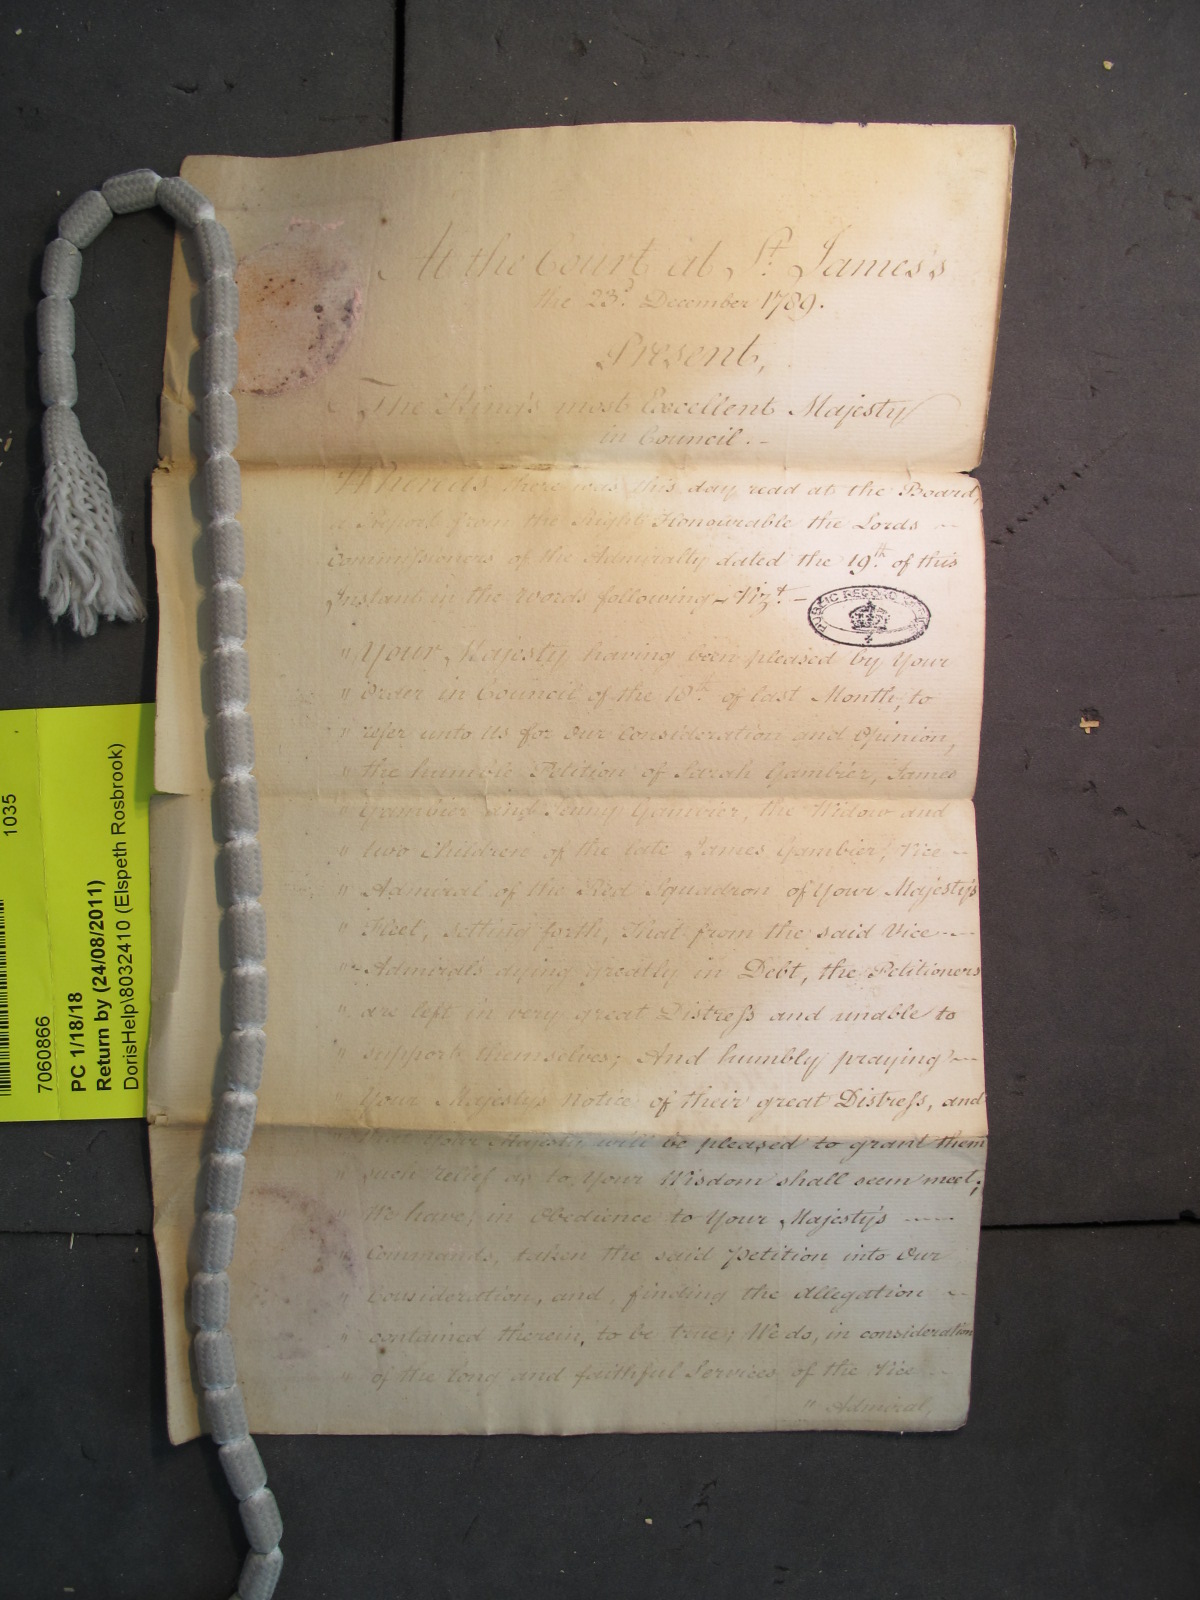 At the Court at St. James's
the 23d. December 1789.
Present,
The King's most Excellent Majesty
in Council.-
Whereas there was this day read at the Board,
a Report from the Right Honourable the Lords
Commissioners of the Admiralty dated the 19th. of this
Instant in the words following - Vizt. -
PUBLIC RECORD OFFICE
" Your Majesty having been pleased by Your
" Order in Council of the 18th. of last Month, to
" refer unto Us for Our Consideration and Opinion,
" the humble Petition of Sarah Gambier, James
" Gambier and Gambier, the Widow and
" two Children of the late James Gambier, Vice
" Admiral of the Red Squadron of Your Majesty's
" Fleet, setting forth, That from the said Vice
" Admiral's dying greatly in Debt, the Petitioners
" are left in very great Distress and unable to
" support themselves; And humbly praying
" Your Majesty's Notice of their great Distress, and
" that Your Majesty will be pleased to grant them
" such relief as to Your Wisdom shall seem meet;
" We have, in Obedience to Your Majesty's
" Commands, taken the said Petition into Our
" Consideration, and, finding the Allegation
" contained therein, to be true; We do, in consideration
" of the long and faithful Services of the Vice
" Admiral,
1035
7060866
PC 1/18/18
Return by (24/08/2011)
DorisHelp\8032410 (Elspeth Rosbrook)